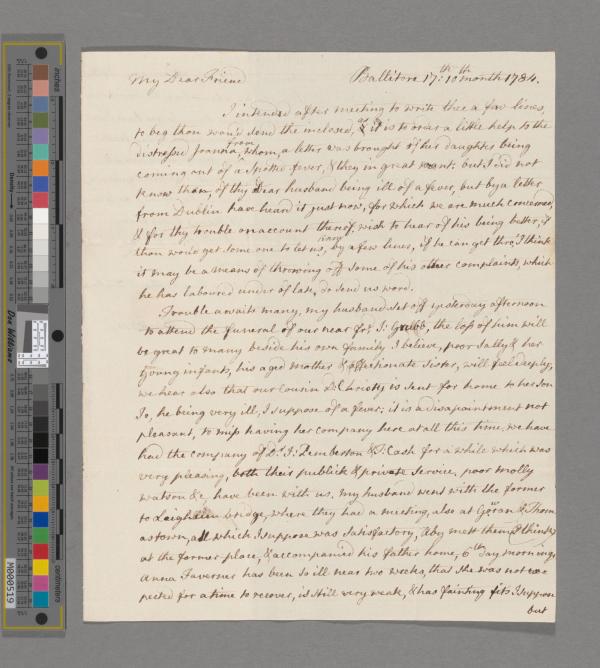 My Dear Friend Ballitore 17th: 10th month 1784.
I intended after meeting to write thee a few lines,
to beg thou wou'd send the inclosed, it is to order a little help to the
distressed Joanna, from whom, a letter was brought of her daughter being
coming out of a spotted fever, & they in great want: but I did not
know then, of thy dear husband being ill of a fever, but by a letter
from Dublin have heard it just now, for which we are much concerned,
& for thy trouble on account thereof, wish to hear of his being better, if
thou wou'd get some one to let us know, by a few lines, if he can get thro' I think
it may be a means of throwing off some of his other complaints, which
he has laboured under of late, do send us word.
Trouble awaits many, my husband set off yesterday afternoon
to attend the funeral of our near frd. J: Grubb, the loss of him will
be great to many beside his own family I believe, poor Sally & her
young infants, his aged Mother & affectionate Sister, will feel deeply,
we hear also that our cousin D: Christy is sent for home to her son
Jo, he being very ill, I suppose of a fever; it is a disapointment not
pleasant, to miss having her company here at all this time, we have
had the company of J: Pemberton & T: Cash for a while which was
very pleasing, both their publick & private service, poor Molly
Watson &c, have been with us, my husband went with the former
to Leighlin bridge, where they had a meeting, also at Goran & Thom
astown, all which I suppose was satisfactory, Aby mett them I think
at the former place, & accompanied his father home, 6th day morning,
Anna Taverner has been so ill near two weeks, that she was not ex=
pected for a time to recover, is still very weak, & has fainting fits I suppose
but
inches
centimeters
Don Williams
M000519